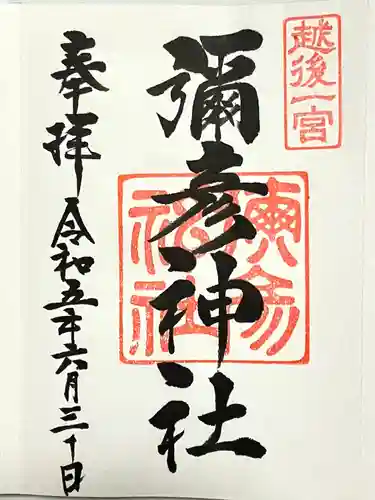 越後一宮
彌彦神社
奉拝
令和五年六月三十日